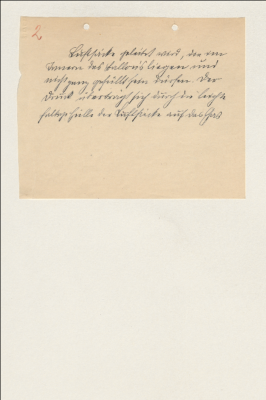 2
Luftsäcke geleitet wird, die im
Innern des Ballons liegen und
nicht ganz gefüllt sein dürfen. Der
Druck überträgt sich durch die leichte
faltige Hülle der Luftsäcke auf das Gas